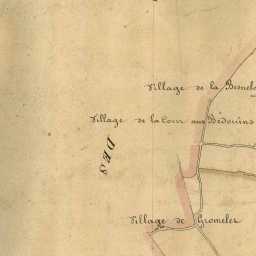 Village de la Besnelo
Village de la Cour aux Bédouins
DES
Village de Gromeler